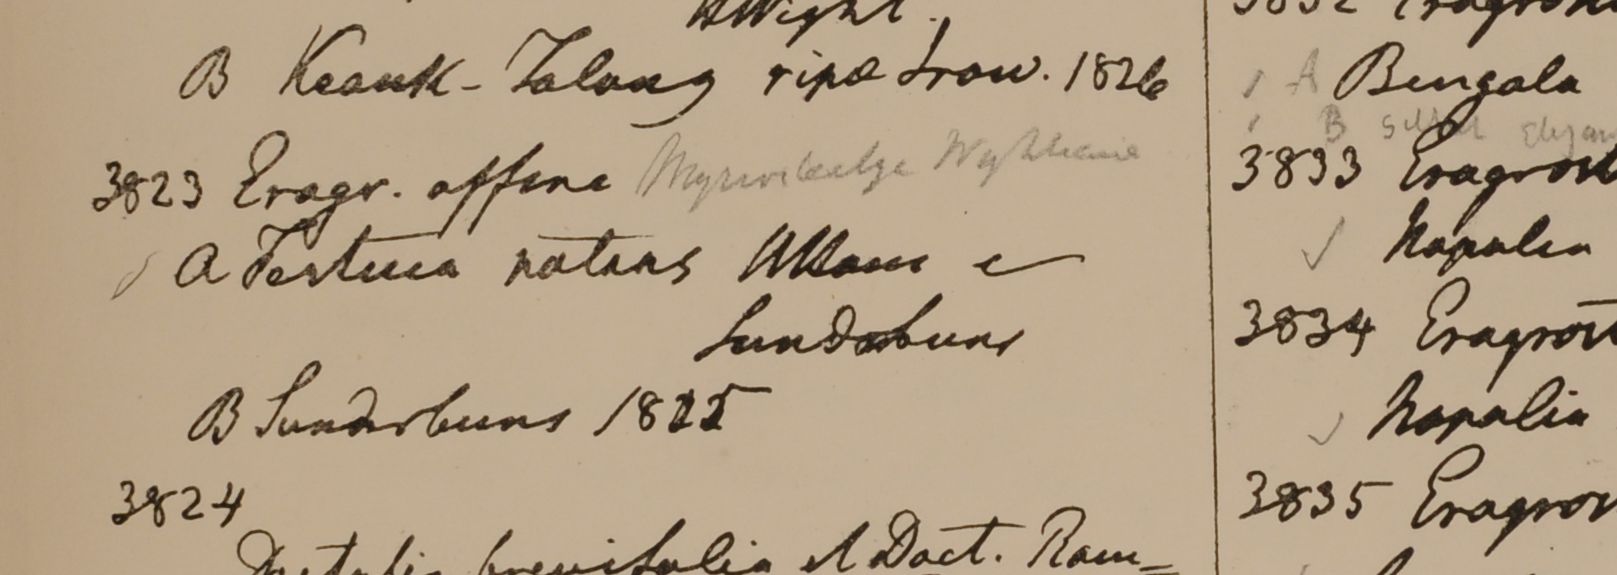 HWight.
B Keauk-Talong ripa Iraw. 1826
3823 Eragr. affine Myriostachya Wightiana
a Festuca natans HHam e
Sunderbuns
B Sunderbuns 1825
3824
Dactylis brevifolia a Dact. Ram=
3832 Eragrost
A Bengala
B
3833 Eragrost
Napalia
3834 Eragrost
Napalia
3835 Eragros